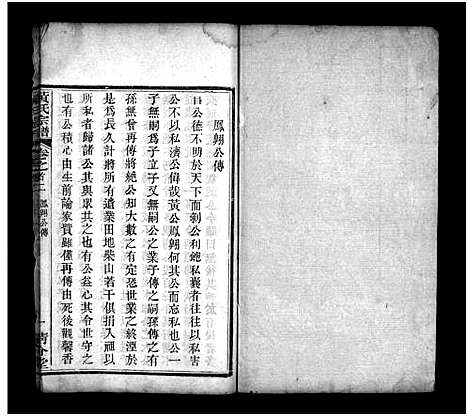 鳳翱公傳
自公德不明於天下剥公利飽私囊者往往以私害
公不以私濟公偉哉黃公鳳翱何其公而忘私也公一
子無嗣爲子立子又無嗣公之業子傳之嗣孫傳之而
孫無曾再傳將絶公知大數之有定恐世業之終湮於
是爲長久計將所有遺業田地柴山若干俱捐入祠以
所私者歸諸公其與眾共之也有公益心其令世守之
也有公材由生前論家貲雖僅再傳由死後觀馨香
黃氏宗譜
卷之首二
鳳翱公傳